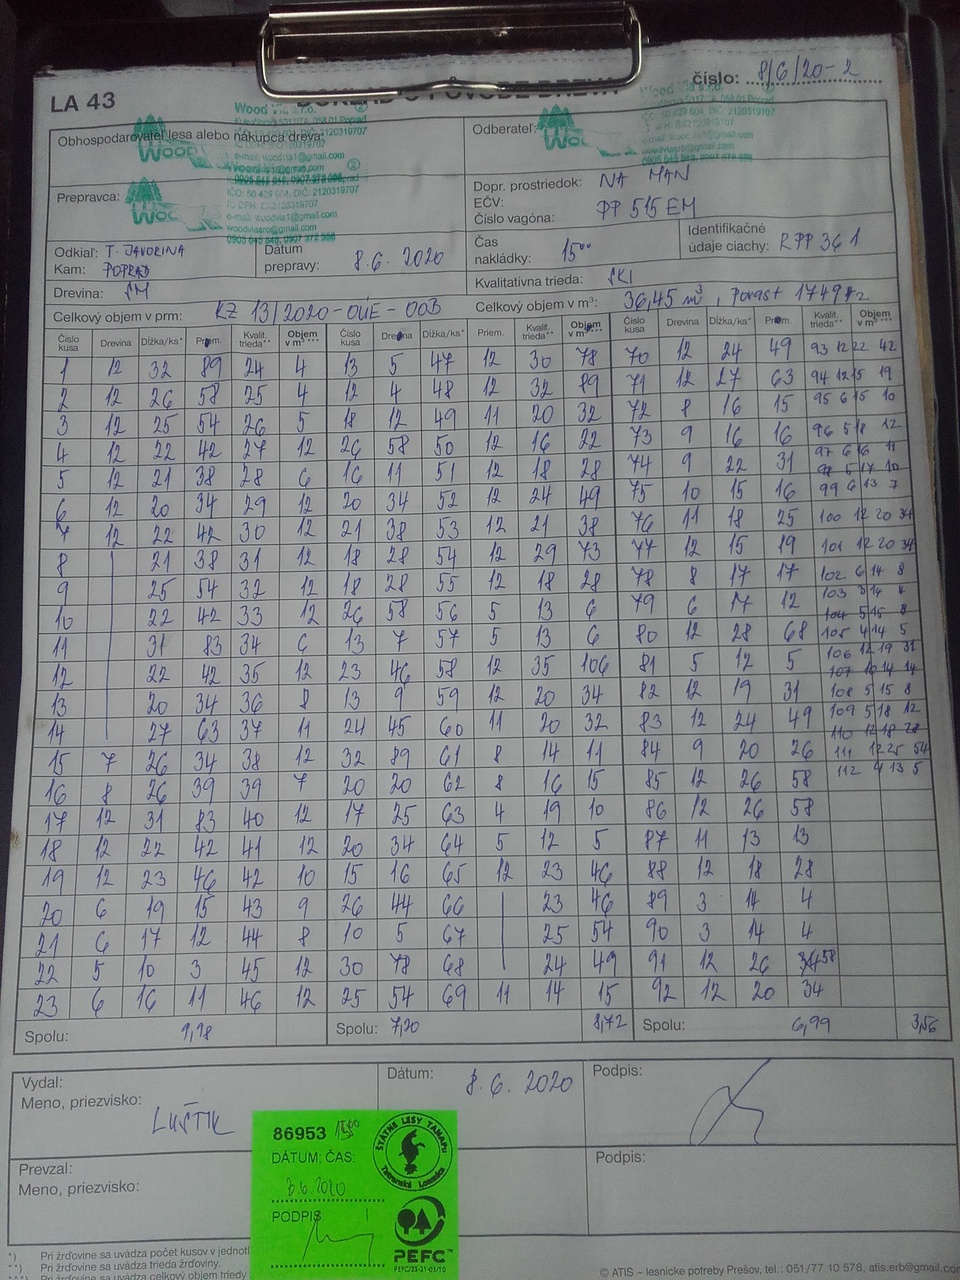 číslo: 8/6/20-2
LA 43
Wood Via s.r.o.
Obhospodarovateľ lesa alebo nákupca dreva:
Odberateľ:
Prepravca:
Dopr. prostriedok: NA MAN
EČV: PP 515 EM
Číslo vagóna:
Odkiaľ: T. JAVORINA
Kam: POPRAD
Dátum prepravy: 8.6.2020
Čas nakládky: 15⁰⁰
Identifikačné údaje ciachy: RPP 361
Drevina: SM
Kvalitatívna trieda: SKI
Celkový objem v prm: KZ 13/2020-OUE-OOB
Celkový objem v m³: 36,45 m³,
Číslo kusa Drevina Dĺžka/ks* Priem. Kvalit. trieda** Objem v m³*** Číslo kusa Drevina Dĺžka/ks* Priem. Kvalit. trieda** Objem v m³*** Číslo kusa Drevina Dĺžka/ks* Priem. Kvalit. trieda** Objem v m³***
1 12 32 89 24 4 13 5 47 12 30 78 70 12 24 49 93 12 22 42
2 12 26 58 25 4 12 4 48 12 32 89 71 12 27 63 94 12 15 19
3 12 25 54 26 5 18 12 49 11 20 32 72 8 16 15 95 6 15 10
4 12 22 42 27 12 26 58 50 12 16 22 73 9 16 16 96 5 18 12
5 12 21 38 28 6 16 11 51 12 18 28 74 9 22 31 97 6 16 11
98 5 17 10
6 12 20 34 29 12 20 34 52 12 24 49 75 10 15 16 99 6 13 7
7 12 22 42 30 12 21 38 53 12 21 38 76 11 18 25 100 12 20 34
8 21 38 31 12 18 28 54 12 29 73 77 12 15 19 101 12 20 34
9 25 54 32 12 18 28 55 12 18 28 78 8 17 17 102 6 14 8
10 22 42 33 12 26 58 56 5 13 6 79 6 17 12 103 3 14 4
104 5 15 8
11 31 83 34 6 13 7 57 5 13 6 80 12 28 68 105 4 14 5
12 22 42 35 12 23 46 58 12 35 106 81 5 12 5 106 12 19 31
107 10 14 14
13 20 34 36 8 13 9 59 12 20 34 82 12 19 31 108 5 15 8
14 27 63 37 11 24 45 60 11 20 32 83 12 24 49 109 5 18 12
110 12 18 28
15 7 26 34 38 12 32 89 61 8 14 11 84 9 20 26 111 12 25 54
16 8 26 39 39 7 20 20 62 8 16 15 85 12 26 58 112 4 13 5
17 12 31 83 40 12 17 25 63 4 19 10 86 12 26 58
18 12 22 42 41 12 20 34 64 5 12 5 87 11 13 13
19 12 23 46 42 10 15 16 65 12 23 46 88 12 18 28
20 6 19 15 43 9 26 44 66 23 46 89 3 14 4
21 6 17 12 44 8 10 5 67 25 54 90 3 14 4
22 5 10 3 45 12 30 78 68 24 49 91 12 26 58
23 6 16 11 46 12 25 54 69 11 14 15 92 12 20 34
Spolu: 9,78 Spolu: 7,20 8,72 Spolu: 6,99 3,56
Vydal:
Meno, priezvisko: LUŠTIK
Dátum: 8.6.2020
Podpis:
86953 15⁰⁰
DÁTUM; ČAS:
8.6.2020
PODPIS:
ŠTÁTNE LESY TANAPU
Tatranská Lomnica
PEFC™
PEFC/23-21-03/10
Prevzal:
Meno, priezvisko:
Podpis:
*) Pri žrďovine sa uvádza počet kusov v jednotl
**) Pri žrďovine sa uvádza trieda žrďoviny.
***) Pri žrďovine sa uvádza celkový objem triedy
© ATIS – lesnícke potreby Prešov, tel.: 051/77 10 578, atis.erb@gmail.com